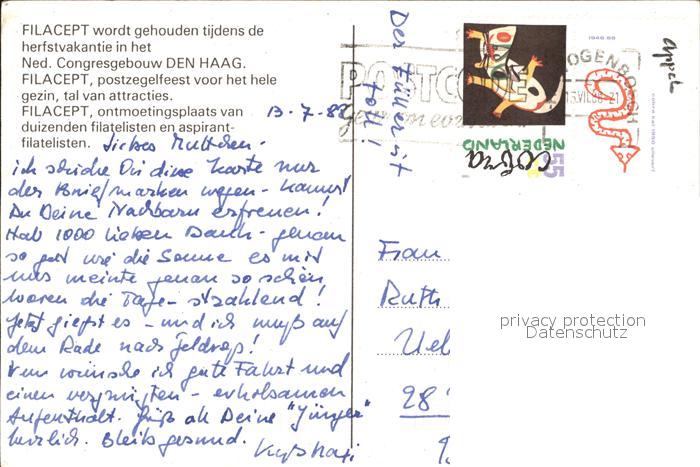 FILACEPT wordt gehouden tijdens de
herfstvakantie in het
Ned. Congresgebouw DEN HAAG.
FILACEPT, postzegelfeest voor het hele
gezin, tal van attracties.
FILACEPT, ontmoetingsplaats van
duizenden filatelisten en aspirant-
filatelisten.
13-7-88
Liebes Muttchen.
ich schicke Dir diese Karte nur
der Briefmarken wegen - kannst
Du Deine Nachbarn erfreuen!
Hab 1000 lieben Dank - genau
so gut wie die Sonne es mit
uns meinte genau so schön
waren die Tage - strahlend!
Jetzt gießt es - und ich muß auf
dem Rade nach Geldrop!
Nun wünsche ich gute Fahrt und
einen vergnügten - erholsamen
Aufenthalt. Grüß all Deine "Jünger"
herzlich. Bleib gesund.
Der Füller ist
toll!
POSTCODE
gewoon
OGENBOSCH
13.VII.88-21
cobra
55
NEDERLAND
1948-88
appel
Frau
Ruth
Uel
28
privacy protection
Datenschutz